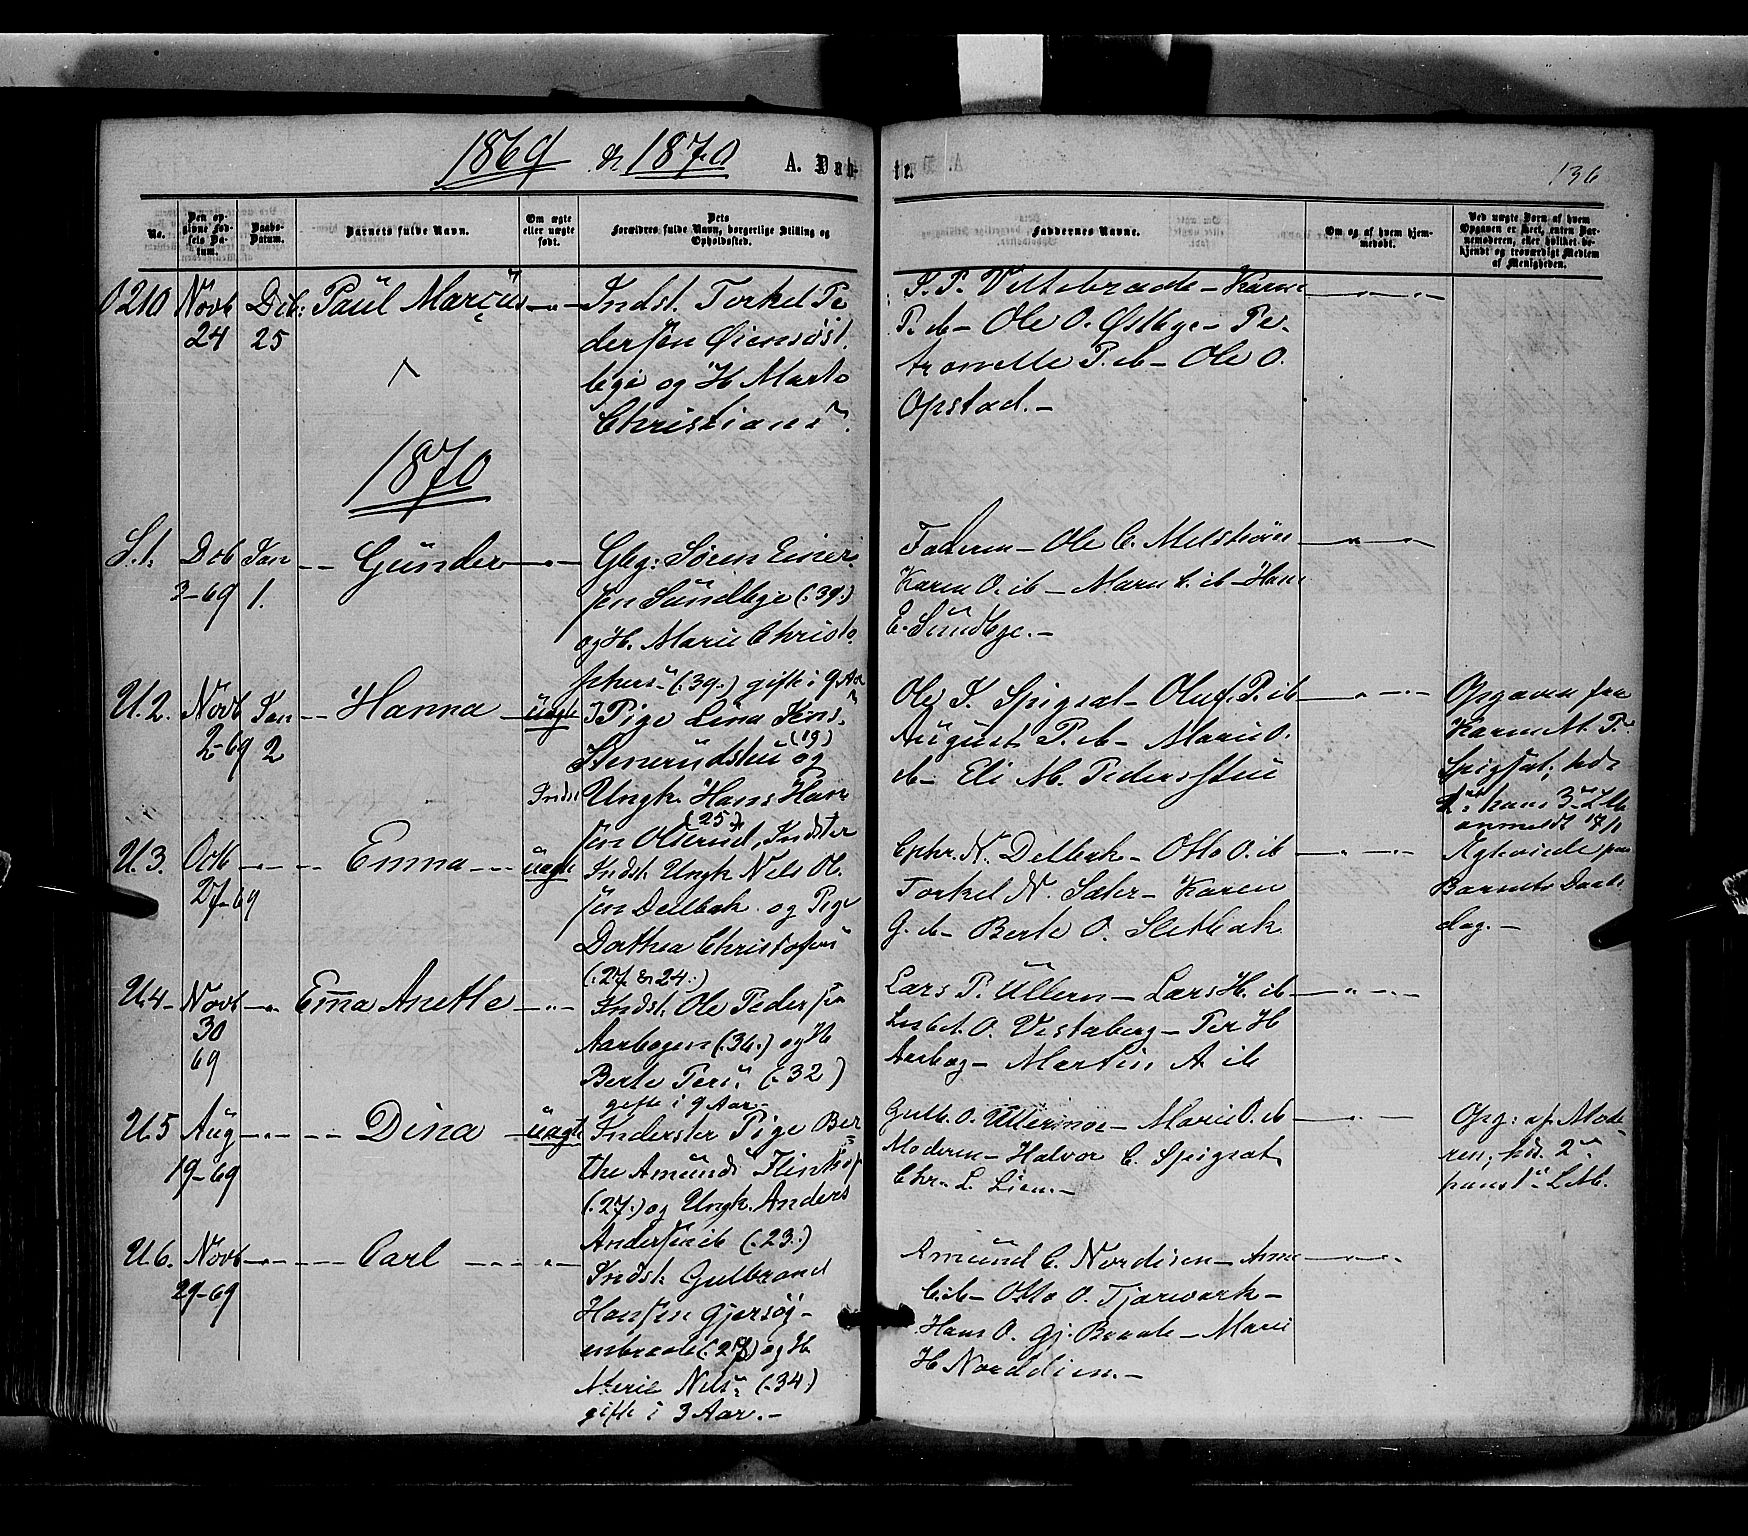 1869 & 1870 A. Døb-
te. 136
No.
Den opgivne Fødsels Datum.
Daabs-Datum.
Barnets fulde Navn.
Om ægte eller uægte født.
Dets Forældres fulde Navn, borgerlige Stilling og Opholdssted.
Faddernes Navne.
Om og af hvem hjemmedøbt.
Ved uægte Born af hvem Opgaven er skeet, enten Barnemoderen, eller hvilket bekjendt og troværdigt Medlem af Menigheden.
210 Novb Dcb: Paul Marcus Indst. Torkel Pe
24 25 dersen
og H Marte
Christians
P. P. Vittebraade - Karen
P. ib - Ole O. Østbye - Pe-
tronelle P. ib - Ole O.
Opstad. -
1870
S. 1. Dcb Jan Gunder Gbg: Søren Einer
3-69 1. sen Sundbye (:39:)
og H. Marie Christo
phers (:39:) gifte i 9 Aar
Faderen - Ole C.
Karen O. ib - Maren C. ib - Hans
E. Sundbye. -
U. 2. Novb Jan Hanna uægte Pige Lina Jens
2-69 2 (19) og
Indst Ungk. Hans Han
(25)
sen Olterud, Indster
Ole J. Spigsæt - Oluf P. ib
August P. ib - Marie O.
ib - Eli M. Pedersstu
Opgaven fra
Karen M. P.
Spigsæt;
anmeldt 17/1
U. 3. Octb Emma uægte Indst. Ungk Nels Ol.
27-69 sen Delbæk og Pige
Dorthea Christofers
(:27 & 24:)
Cphr. N. Delbæk - Otto O. ib
Torkel N. Sæter - Karen
G. ib - Berte O. Sletbak
Barnets Daabs
dag. -
U. 4 - Novb Emma Anette Indst. Ole Peders
30 Aarbogen (:36:) og H
69 Berte Pers (:32)
gifte i 9 Aar. -
Lars P. Ullern - Lars H. ib
Lisbet O. Vestaberg - Per H
Aarbog - Martin A ib
U. 5 Aug Dina uægte Inderster Pige Ber
19-69 the Amunds
(:27:) og Ungk. Anders
Andersen ib (:23:)
Gulb. O. Ullermoe - Marie O. ib
Moderen - Halvor C. Spigsæt
Chr. L. Lien. -
Opg: af Mode-
ren;
U. 6. Novb Carl Indst. Gulbrand
29-69 Hansen Gjersøy-
enbraate (:27) og H
Marie Nels (:34)
gifte i 3 Aar. -
Amund C. Nordieen - Anne
C. ib - Otto O. Tjærvark -
Hans O. Gj. Braate - Marie
H Norddien. -